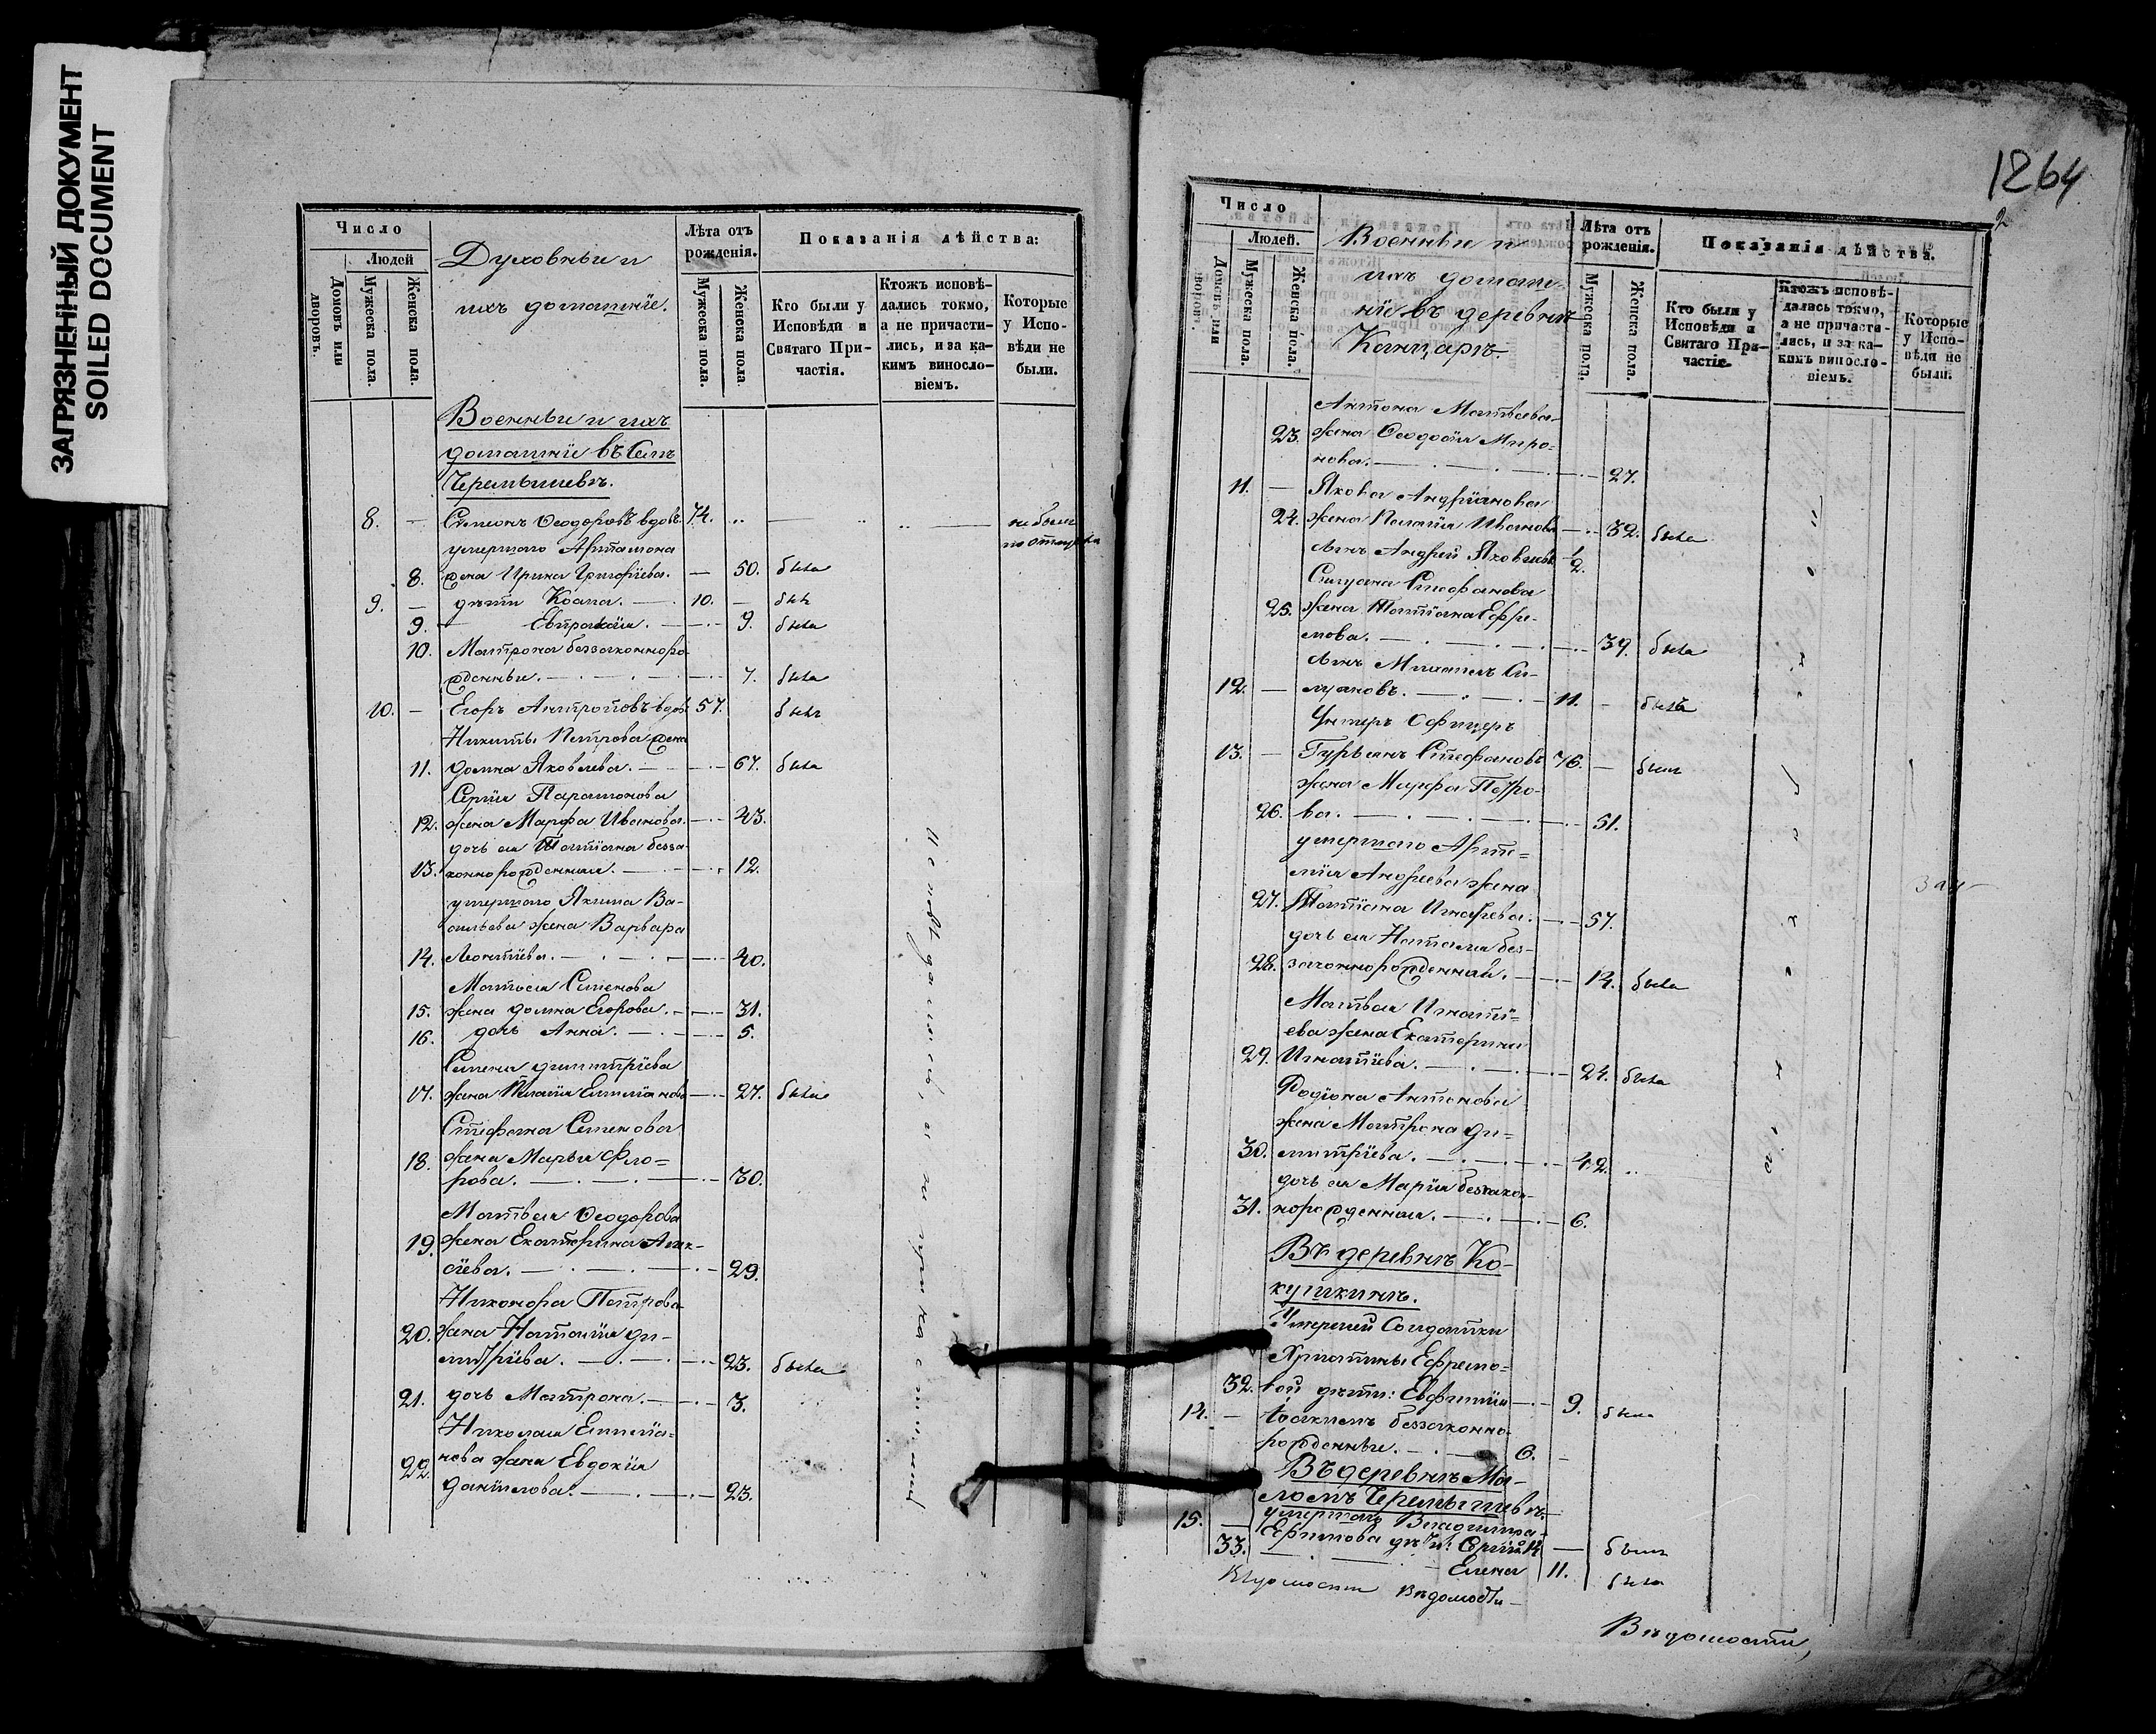 ЗАГРЯЗНЕННЫЙ ДОКУМЕНТ
SOILED DOCUMENT
Число
Людей
Домовъ или дворовъ.
Мужеска пола.
Женска пола.
Духовныи и
ихъ домашніе.
Лѣта отъ рожденія.
Мужеска пола.
Женска пола.
Показанія дѣйства:
Кто были у Исповѣди и Святаго При-частія.
Ктожъ исповѣ-дались токмо, а не причасти-лись, и за ка-кимъ винословіемъ.
Которые у Испо-вѣди не были.
Военныи и ихъ
домашніе въ Селѣ
Черемышевѣ.
8. — Симеонъ Ѳеодоровъ вдовъ 74. не былъ
умершаго Артамона
8. жена Ирина Григоріева. — 50. была
9. — дѣти Козма. — 10. — былъ
9. Евпраксія. — 9. была
10. Матрона беззаконноро-
жденныи. — 7. была
10. — Егоръ Антроповъ вдовъ 57. былъ
Никиты Петрова жена
11. Домна Яковлева. — 67. была
Сергія Парамонова
12. жена Марфа Иванова. — 43.
дочь ея Татіана безза-
13. коннорожденная. — 12.
умершаго Якима Ва-
сильева жена Варвара
14. Леонтіева. — 40.
Матвея Семенова
15. жена Домна Егорова. — 31.
16. дочь Анна. — 5.
Семена Димитріева
17. жена Пелагія Емеліанова — 27. была
Стефана Семенова
18. жена Марья Фло-
рова. — 30.
Матвея Ѳеодорова
19. жена Екатерина Алек-
сіева. — 29.
Никонора Петрова
20. жена Наталія Ди-
митріева. — 23. была
21. дочь Матрона. — 3.
Николая Емеліа-
22. нова жена Евдокія
Даніилова. — 23.
1264
2
Число
Людей.
Домовъ или дворовъ.
Мужеска пола.
Женска пола.
Военныи и
ихъ домаш-
ніе въ деревнѣ
Канцарѣ
Лѣта отъ рожденія.
Мужеска пола.
Женска пола.
Показанія дѣйства.
Кто были у Исповѣди и Святаго При-частія.
Ктожъ исповѣ-дались токмо, а не причасти-лись, и за ка-кимъ винословіемъ.
Которые у Испо-вѣди не были.
Антона Матвѣева
23. жена Ѳеодосія Миро-
нова. — 27.
11. — Якова Андріанова
24. жена Пелагія Иванова — 32. была
сынъ Андрей Яковлевъ ½.
Силуана Стефанова
25. жена Татіана Ефре-
мова. — 39. была
сынъ Михаилъ Си-
12. — луановъ. — 11. — былъ
Унтеръ Офицеръ
13. — Гурьянъ Стефановъ 76. — былъ
жена Марфа Петро-
26. ва. — 51.
умершаго Арте-
мія Андреева жена
27. Татіана Игнатьева. — 57.
дочь ея Наталія без-
28. законнорожденная. — 14. была
Матвея Игнаті-
ева жена Екатерина
29. Игнатіева. — 24. была
Родіона Антонова
жена Матрона Ди-
30. митріева. — 42.
дочь ея Марія беззакон-
31. норожденная. — 6.
Въ деревнѣ Ко-
кушкинѣ.
Умершей Солдатки
Христины Ефремо-
32. вой дѣти: Евфимія — 9. была
14. — Іоакимъ беззаконно-
рожденныи. — 6. —
Въ деревнѣ Ма-
ломъ Черемышевѣ
15. умершаго Владимира
Ефимова дѣти: Сергій 14 — былъ
33. — Елена 11. была
Вѣдомости Вѣдомости
Вѣдомости,